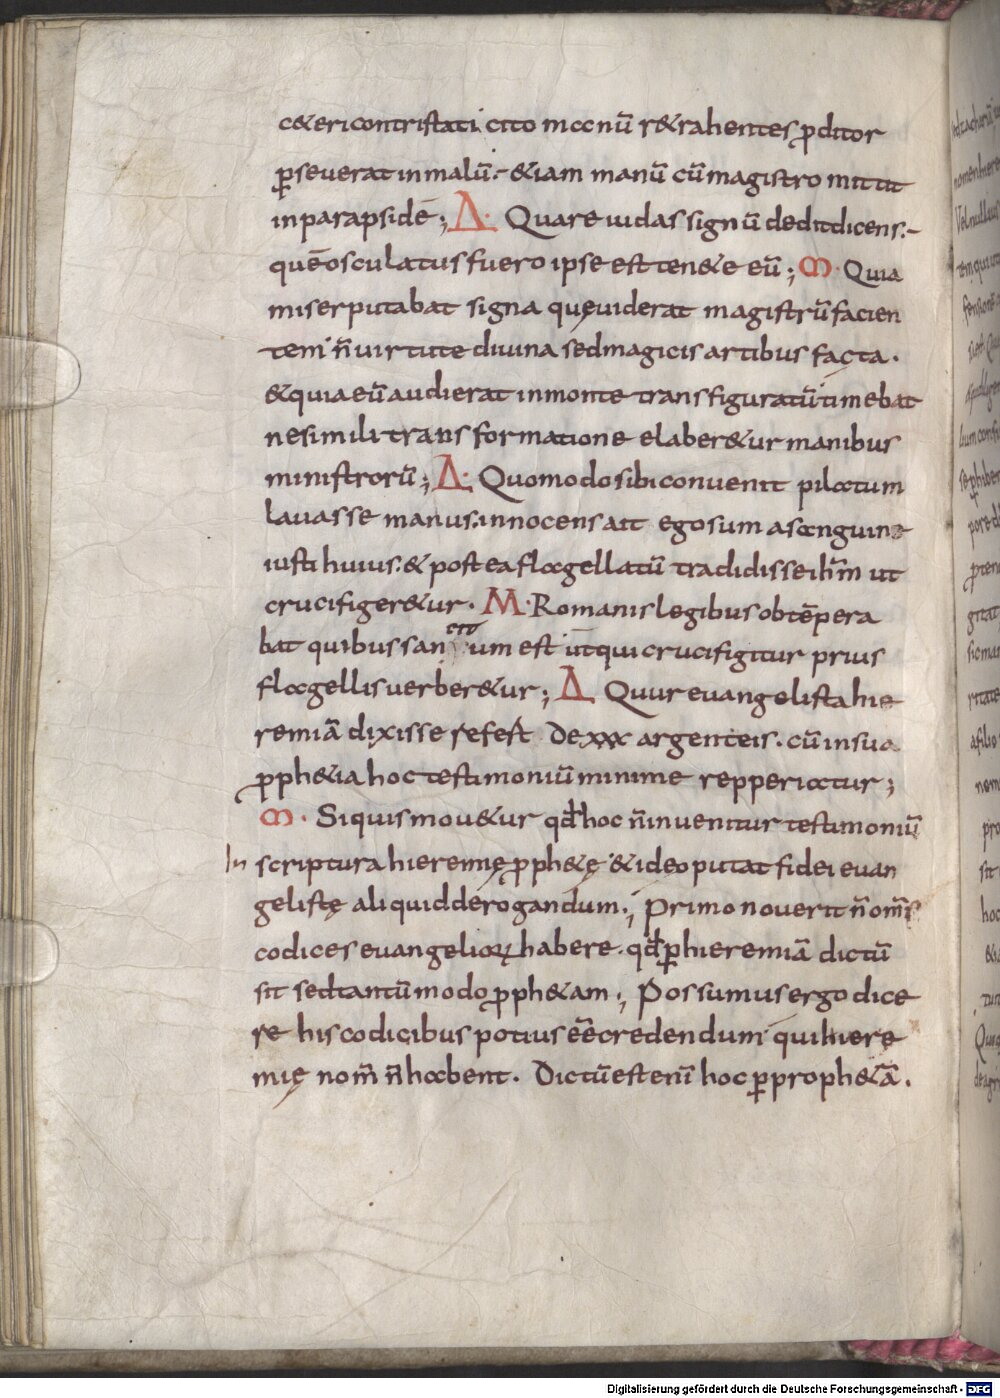 c&eri contristati. cito manū r&rahentes p̄ditor
p̱severat in malū. &iam manū cū magistro mittit
in parapsidē; Δ· Quare iudas signū dedit dicens.
quē osculatus fuero ipse est ten&e eū; M· Quia
miser putabat signa quę viderat magistrū facien
tem n̄ virtute divina sed magicis artibus facta.
& quia eū audierat in monte transfiguratū timebat
ne simili transformatione elaber&ur manibus
ministrorū; Δ· Quomodo sibi convenit pilatum
lavasse manus. innocens ait ego sum a sanguine
iusti huius. & postea flagellatū tradidisse ihm̄ ut
crucifiger&ur. M· Romanis legibus obtēpera
bat quibus sancitum est ut qui crucifigitur prius
flagellis verber&ur; Δ Quur evangelista hie
remiā dixisse refert De xxx argenteis. cū in sua
p̄ph&ia hoc testimoniū minime repperiatur;
M· Si quis mov&ur qđ hoc n̄ invenitur testimoniū
In scriptura hieremię p̄ph&ę & ideo putat fidei evan
gelistę aliquid derogandum; Primo noverit n̄ om̄s
codices evangeliorꝝ habere. qđ p̱ hieremiā dictū
sit sed tantū modo p̄ph&am; Possumus ergo dice
re his codicibus potius eē credendum qui hiere
mię nom̄ n̄ habent. Dictū est eni hoc p̱ proph&ā.
Digitalisierung gefördert durch die Deutsche Forschungsgemeinschaft - DFG